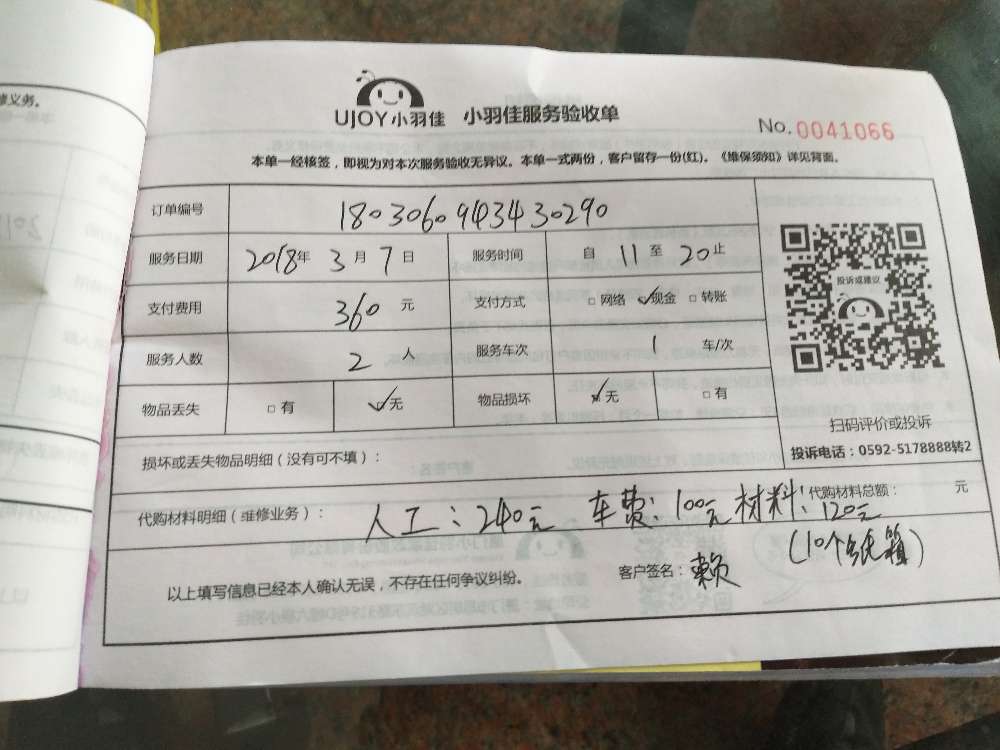 修义务。
UJOY小羽佳 小羽佳服务验收单
No. 0041066
本单一经核签，即视为对本次服务验收无异议。本单一式两份，客户留存一份(红)。《维保须知》详见背面。
订单编号 1803060943430290
服务日期 2018年 3月 7日 服务时间 自 11 至 20 止
支付费用 360 元 支付方式 □网络 ☑现金 □转账
服务人数 2 人 服务车次 1 车/次
物品丢失 □有 ☑无 物品损坏 ☑无 □有
投诉或建议
扫码评价或投诉
投诉电话：0592-5178888转2
损坏或丢失物品明细（没有可不填）：
代购材料明细（维修业务）： 人工：240元 车费：100元 材料：120元 代购材料总额： 元
(10个纸箱)
以上填写信息已经本人确认无误，不存在任何争议纠纷。 客户签名：赖